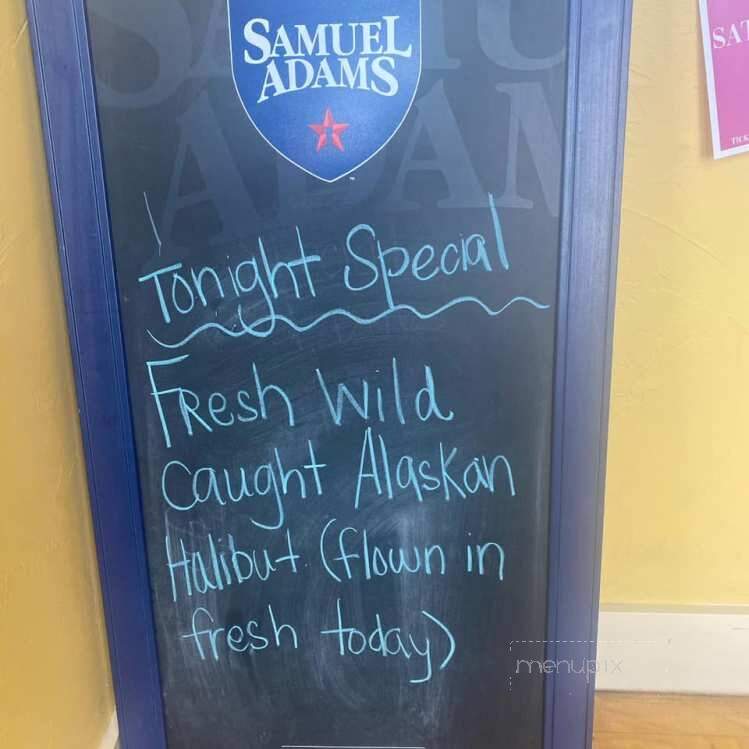 SAMUEL
ADAMS
Tonight Special
Fresh Wild
Caught Alaskan
Halibut (flown in
fresh today)
menupix
SAT
TICK